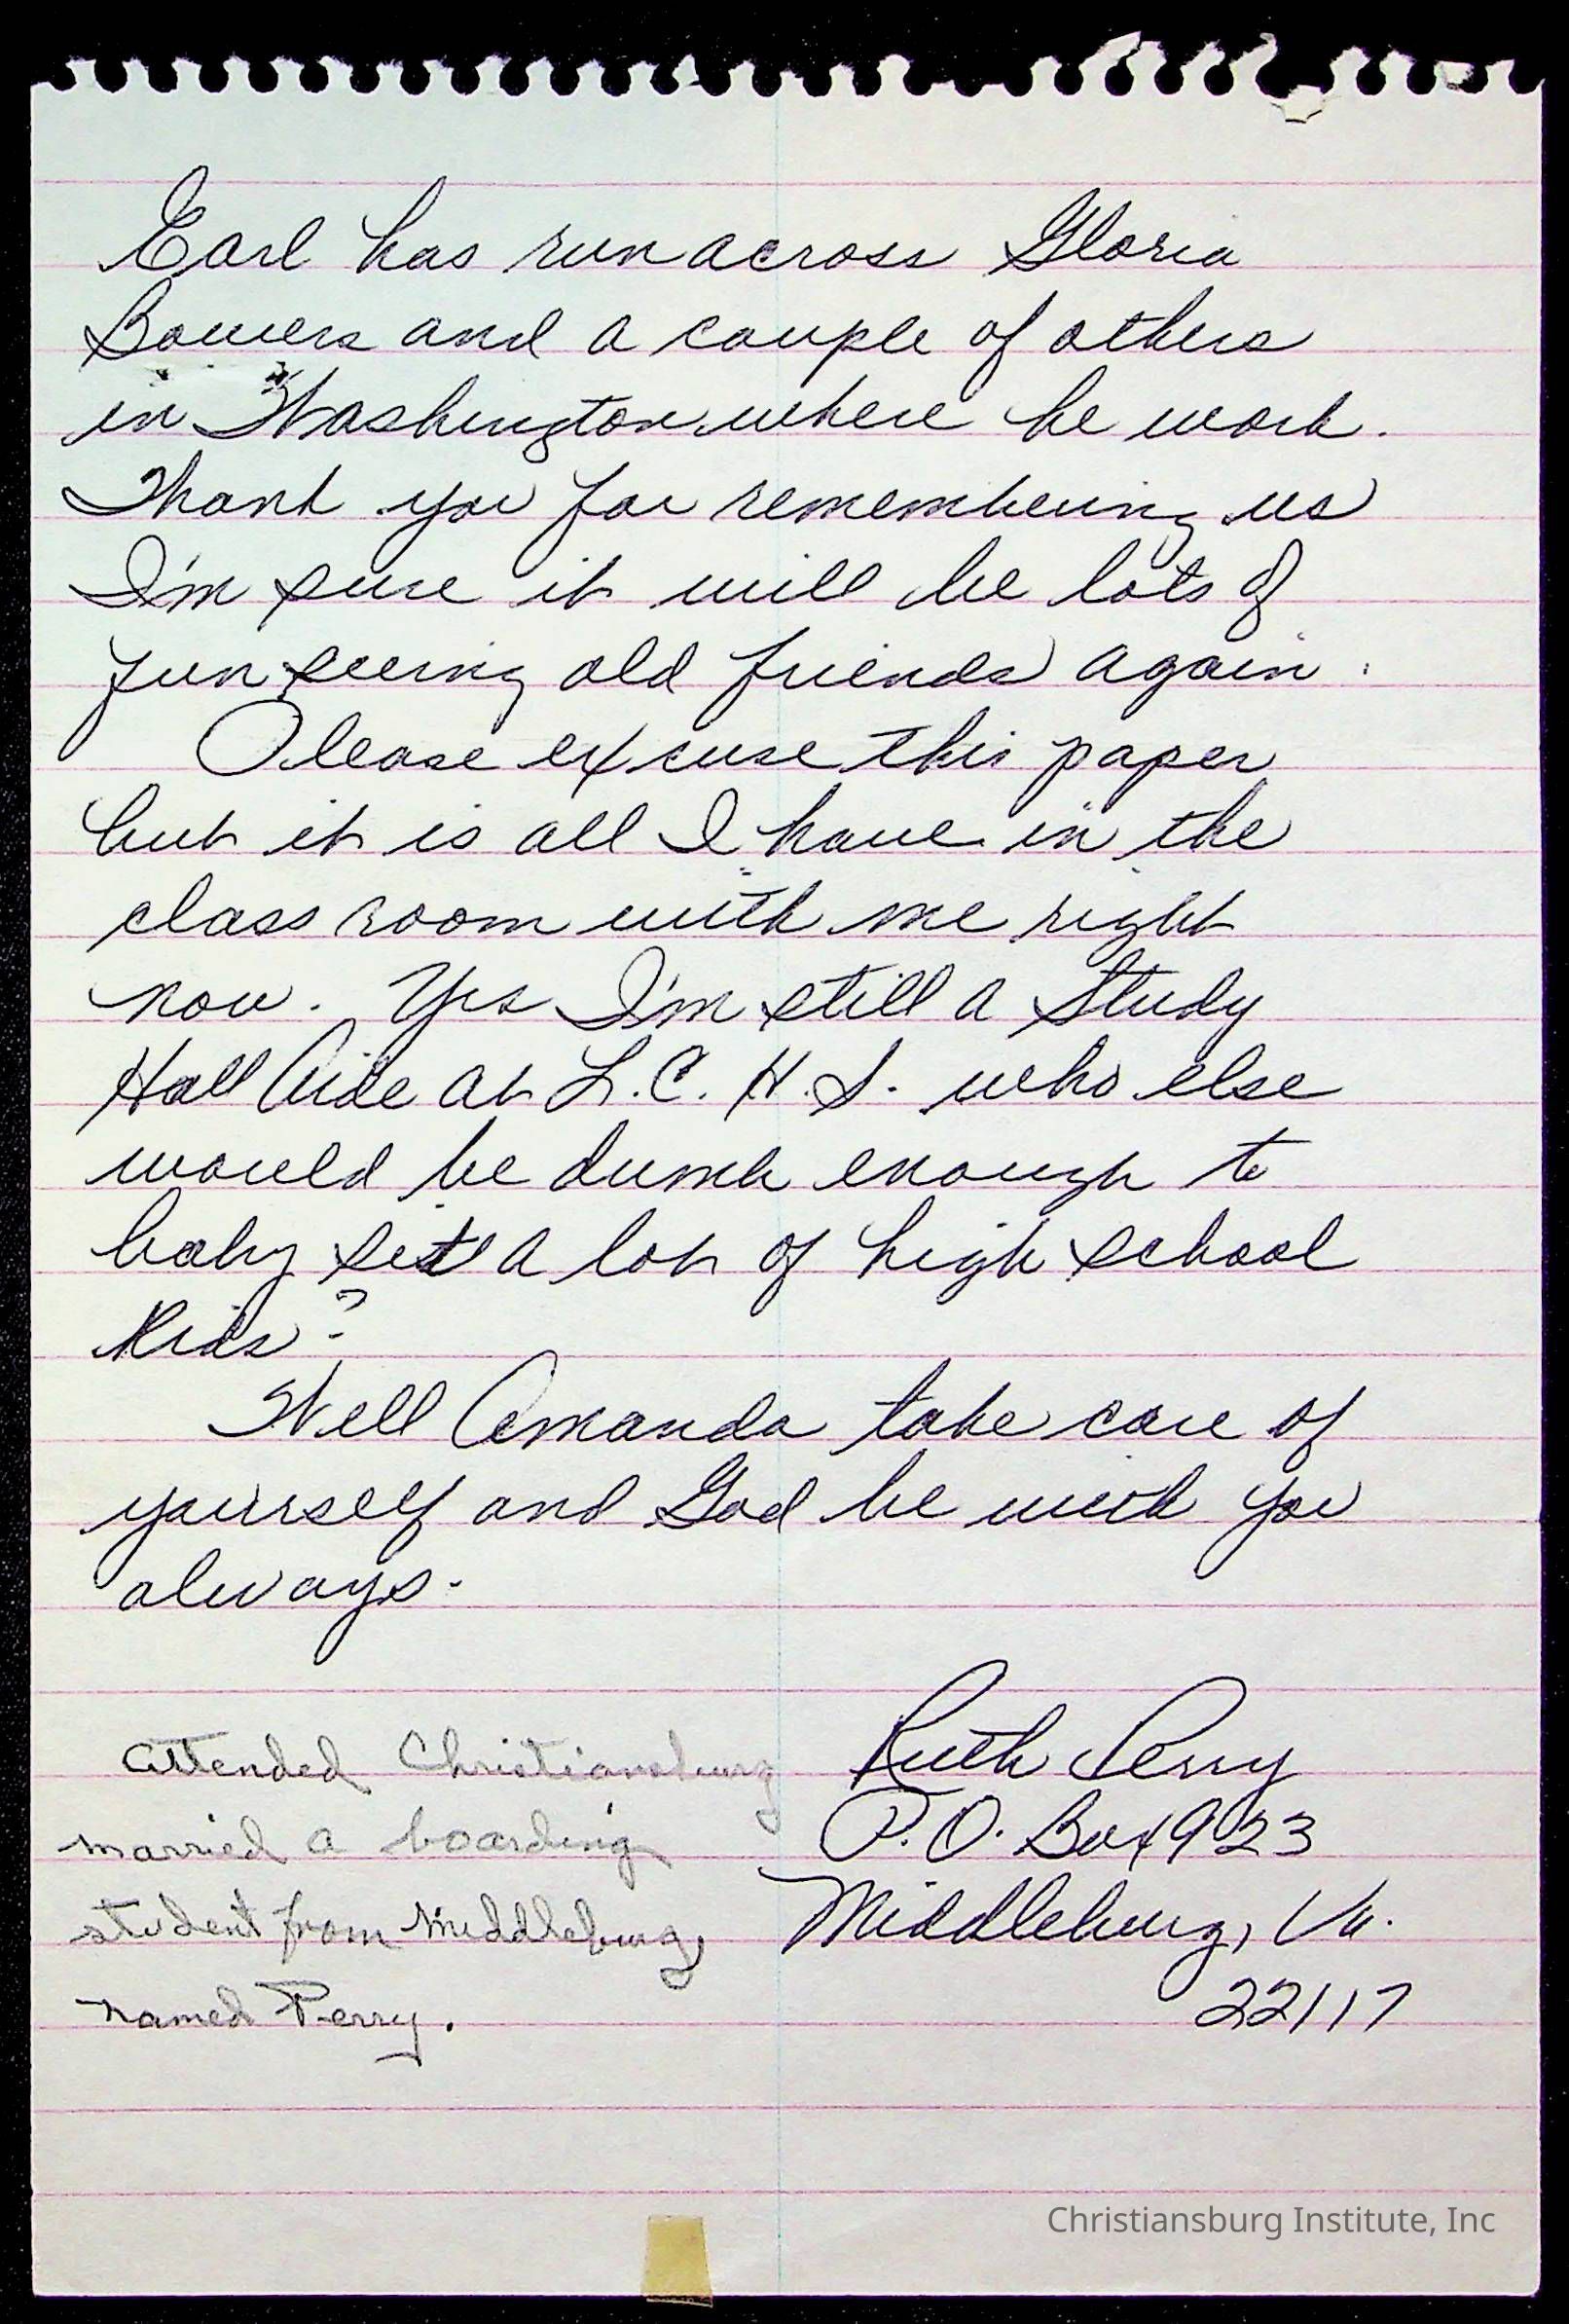 Earl has run across Gloria
Bowers and a couple of others
in Washington where he work.
Thank you for remembering us
I'm sure it will be lots of
fun seeing old friends again.
Please excuse this paper
but it is all I have in the
class room with me right
now. Yes I'm still a Study
Hall Aide at L.C.H.S. who else
would be dumb enough to
baby sit a lot of high school
Kids?
Well Amanda take care of
yourself and God be with you
always.
Ruth Perry
P.O. Box 923
Middleburg, Va.
22117
attended Christiansburg
married a boarding
student from Middleburg,
named Perry.
Christiansburg Institute, Inc